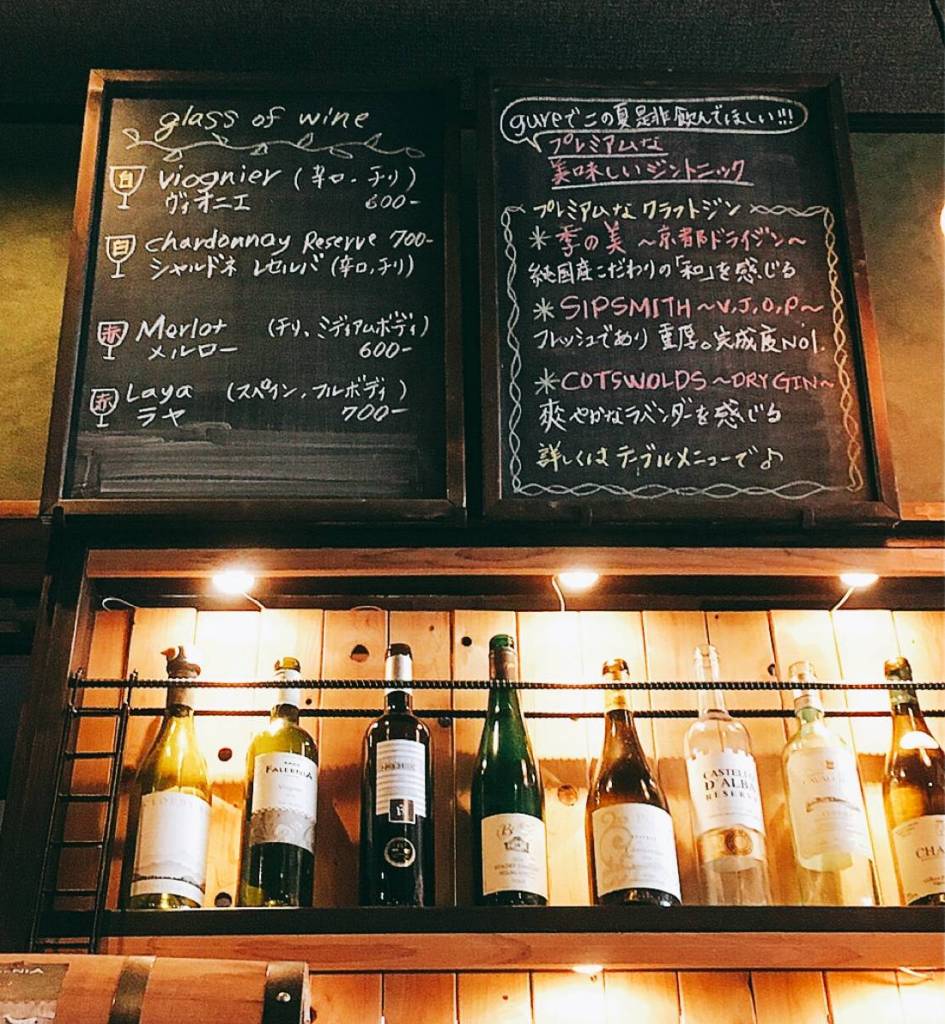 glass of wine
白 viognier (辛口・チリ)
ヴィオニエ 600-
白 chardonnay Reserve 700-
シャルドネ レセルバ (辛口,チリ)
赤 Merlot (チリ,ミディアムボディ)
メルロー 600-
赤 Laya (スペイン,フルボディ)
ラヤ 700-
gureでこの夏是非飲んでほしい!!!
プレミアムな
美味しいジントニック
プレミアムな クラフトジン
＊季の美 ～京都ドライジン～
純国産こだわりの「和」を感じる
＊SIPSMITH～V,J,O,P～
フレッシュであり 重厚。完成度No1.
＊COTSWOLDS～DRY GIN～
爽やかなラベンダーを感じる
詳しくは テーブルメニューで♪
FALERNIA
CASTELLO
D'ALBA
RESERVE
CHA